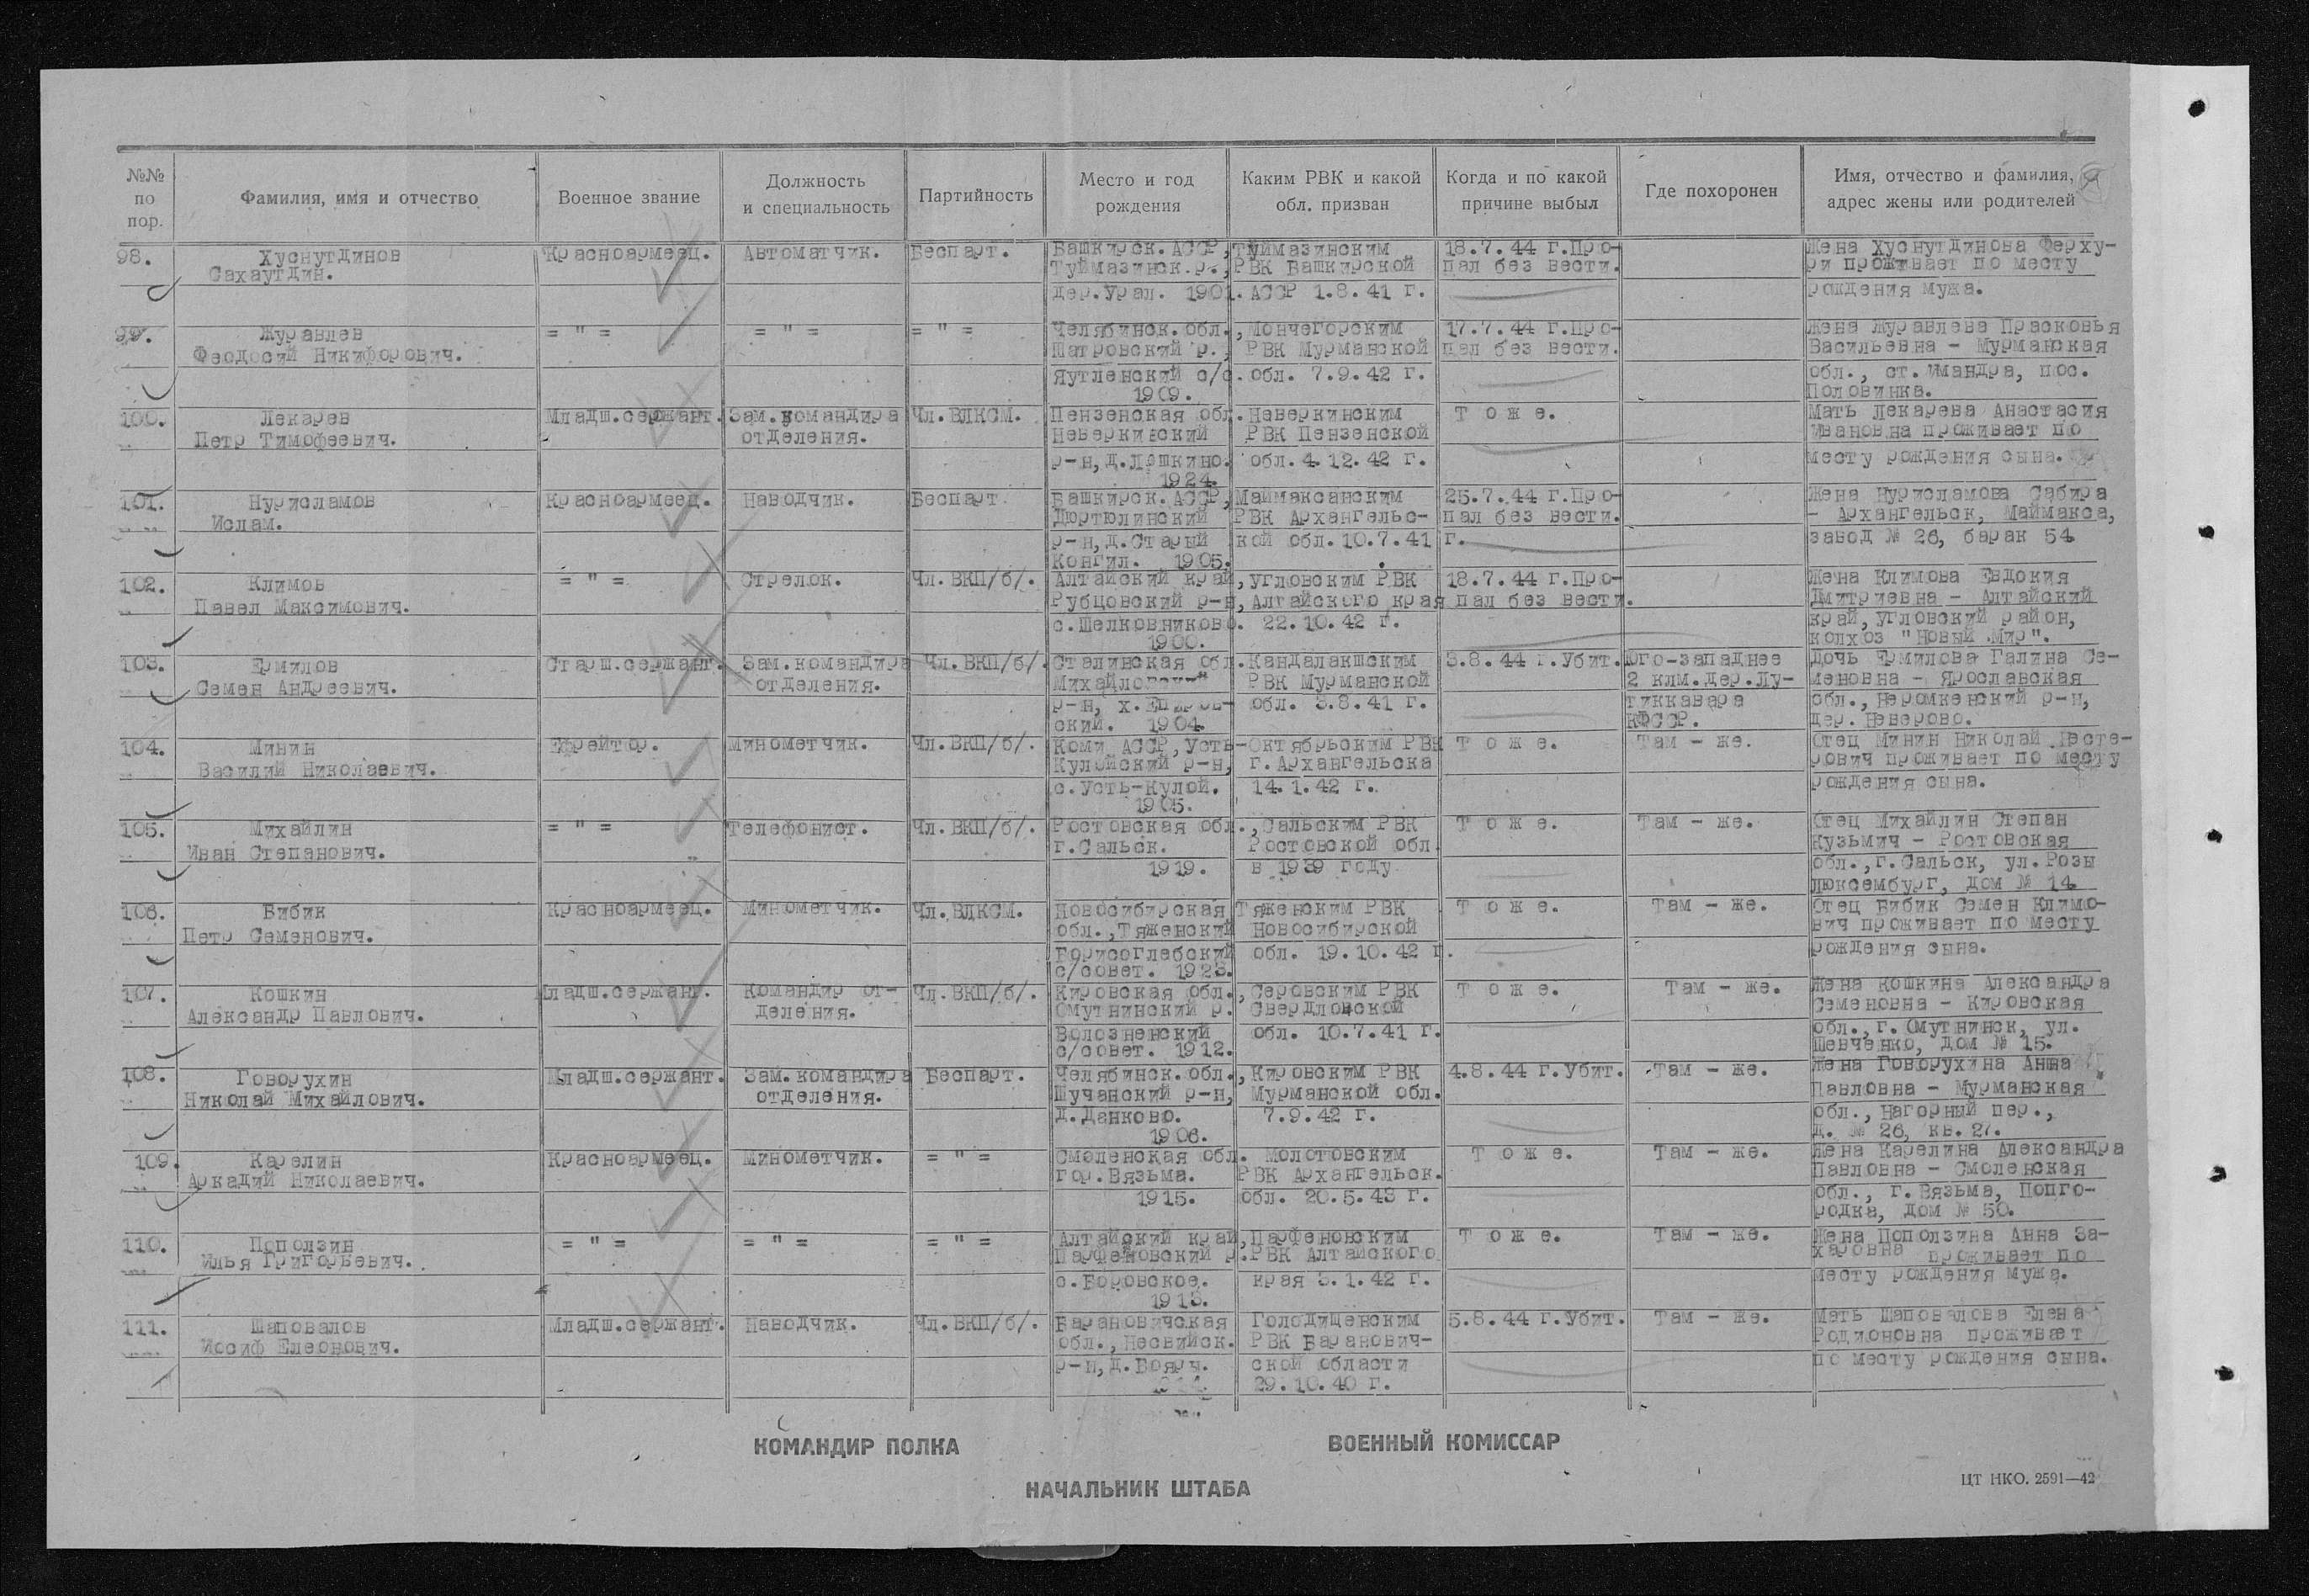 №№ по пор.
Фамилия, имя и отчество
Военное звание
Должность и специальность
Партийность
Место и год рождения
Каким РВК и какой обл. призван
Когда и по какой причине выбыл
Где похоронен
Имя, отчество и фамилия, адрес жены или родителей
98. Хуснутдинов Красноармеец. Автоматчик. Беспарт. Башкирск.АССР, Туймазинским 18.7.44 г.Про- Жена Хуснутдинова Ферху-
Сахаутдин. Туймазинск.р., РВК Башкирской пал без вести. ри проживает по месту
дер.Урал. 1901. АССР 1.8.41 г. рождения мужа.
99. Журавлев = " = = " = = " = Челябинск.обл., Мончегорским 17.7.44 г.Про- Жена Журавлева Прасковья
Феодосий Никифорович. Шатровский р., РВК Мурманской пал без вести. Васильевна - Мурманская
Яутленский с/с. обл. 7.9.42 г. обл., ст. Имандра, пос.
1909. Половинка.
100. Лекарев Младш.сержант. Зам.командира Чл.ВЛКСМ. Пензенская обл. Неверкинским Т о ж е. Мать Лекарева Анастасия
Петр Тимофеевич. отделения. Неверкинский РВК Пензенской Ивановна проживает по
р-н, д.Лашкино. обл.4.12.42 г. месту рождения сына.
1924.
101. Нурисламов Красноармеец. Наводчик. Беспарт. Башкирск.АССР, Маймаксанским 25.7.44 г.Про- Жена Нурисламова Сабира
Ислам. Дюртюлинский РВК Архангельс- пал без вести. - Архангельск, Маймакса,
р-н, д.Старый кой обл.10.7.41 г. завод № 26, барак 54
Конгил. 1905.
102. Климов = " = Стрелок. Чл.ВКП/б/. Алтайский край, Угловским РВК 18.7.44 г.Про- Жена Климова Евдокия
Павел Максимович. Рубцовский р-н, Алтайского края пал без вести. Дмитриевна - Алтайский
с.Шелковниково. 22.10.42 г. край, Угловский район,
1900. колхоз "Новый Мир".
103. Ермилов Старш.сержант. Зам.командира Чл.ВКП/б/. Сталинская обл. Кандалакшским 3.8.44 г.Убит. Юго-западнее Дочь Ермилова Галина Се-
Семен Андреевич. отделения. РВК Мурманской 2 клм.дер.Лу- меновна - Ярославская
р-н, х. обл. 3.8.41 г. тиккавара обл., Перомкенский р-н,
ский. 1904. КФССР. дер.Неверово.
104. Минин Ефрейтор. Минометчик. Чл.ВКП/б/. Коми АССР, Усть- Октябрьским РВК Т о ж е. Там - же. Отец Минин Николай Несте-
Василий Николаевич. Кулойский р-н, г.Архангельска рович проживает по месту
с.Усть-Кулой. 14.1.42 г. рождения сына.
1905.
105. Михайлин = " = Телефонист. Чл.ВКП/б/. Ростовская обл., Сальским РВК Т о ж е. Там - же. Отец Михайлин Степан
Иван Степанович. г.Сальск. Ростовской обл. Кузьмич - Ростовская
1919. в 1939 году обл., г.Сальск, ул.Розы
Люксембург, дом № 14
106. Бибик Красноармеец. Минометчик. Чл.ВЛКСМ. Новосибирская Тяженским РВК Т о ж е. Там - же. Отец Бибик Семен Климо-
Петр Семенович. обл., Тяженский Новосибирской вич проживает по месту
Борисоглебский обл. 19.10.42 г. рождения сына.
с/совет. 1923.
107. Кошкин Младш.сержант. Командир от- Чл.ВКП/б/. Кировская обл., Серовским РВК Т о ж е. Там - же. Жена Кошкина Александра
Александр Павлович. деления. Омутнинский р. Свердловской Семеновна - Кировская
Волозненский обл. 10.7.41 г. обл., г. Омутнинск, ул.
с/совет. 1912. Шевченко, дом № 15.
108. Говорухин Младш.сержант. Зам.командира Беспарт. Челябинск.обл., Кировским РВК 4.8.44 г.Убит. Там - же. Жена Говорухина Анна
Николай Михайлович. отделения. Шучанский р-н, Мурманской обл. Павловна - Мурманская
д.Данково. 7.9.42 г. обл., Нагорный пер.,
1906. д. № 26, кв. 27.
109. Карелин Красноармеец. Минометчик. = " = Смоленская обл. Молотовским Т о ж е. Там - же. Жена Карелина Александра
Аркадий Николаевич. гор.Вязьма. РВК Архангельск. Павловна - Смоленская
1915. обл. 20.5.43 г. обл., г. Вязьма, Попго-
родка, дом № 50.
110. Поползин = " = = " = = " = Алтайский край, Парфеновским Т о ж е. Там - же. Жена Поползина Анна За-
Илья Григорьевич. Парфеновский р. РВК Алтайского харовна проживает по
с.Боровское. края 3.1.42 г. месту рождения мужа.
1913.
111. Шаповалов Младш.сержант. Наводчик. Чл.ВКП/б/. Барановичская Голодищенским 5.8.44 г.Убит. Там - же. Мать Шаповалова Елена
Иосиф Елеонович. обл., Несвийск. РВК Баранович- Родионовна проживает
р-н, д.Бояры. ской области по месту рождения сына.
29.10.40 г.
КОМАНДИР ПОЛКА
ВОЕННЫЙ КОМИССАР
НАЧАЛЬНИК ШТАБА
ЦТ НКО. 2591—42